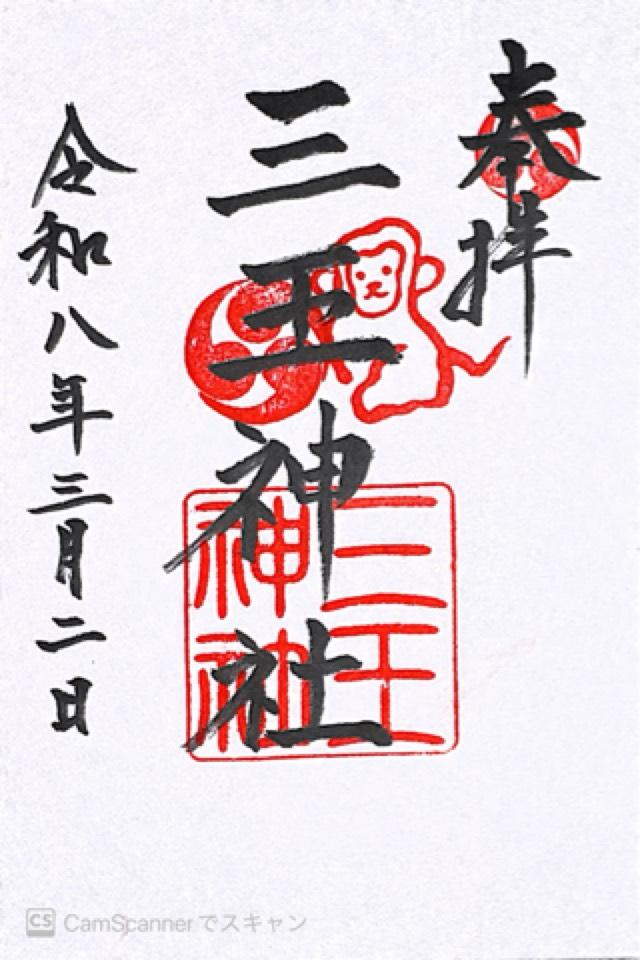 奉拝
三王神社
三王
神社
令和八年三月二日
CS CamScannerでスキャン